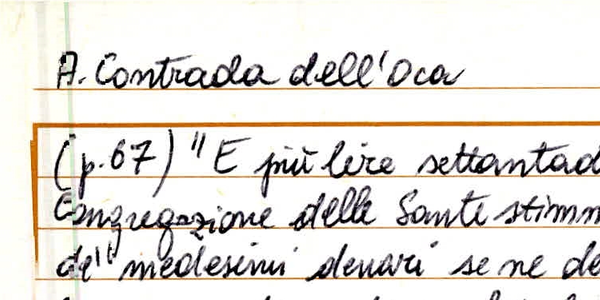 A. Contrada dell'Oca
(p. 67) "E più lire settantad
Congregazione delle Sante stimm
de' medesimi denari se ne de